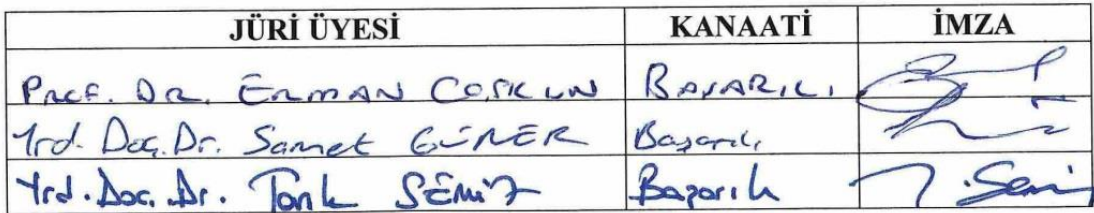 JÜRİ ÜYESİ KANAATİ İMZA
Prof. Dr. Erman COŞKUN BAŞARILI
Yrd. Doç. Dr. Samet GÜNER Başarılı
Yrd. Doç. Dr. Tarık SEMİZ Başarılı